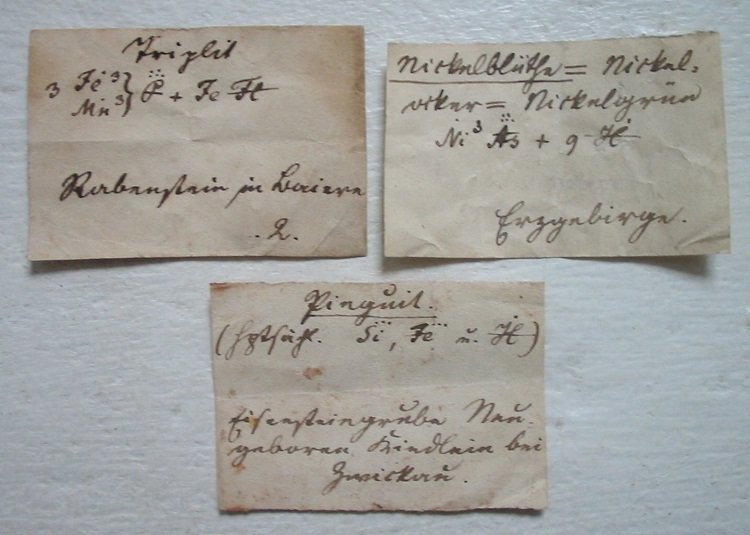 Triplit
3 Fe³ } P + Fe Fl
Mn³ }
Rabenstein in Baiern
2.
Nickelblüthe = Nickel=
ocker = Nickelgrün
Ni³ As + 9 H
Erzgebirge.
Pinguit.
(Hptsächl. Si, Fe u. H)
Eisensteingrube Neu=
geboren Kindlein bei
Zwickau.